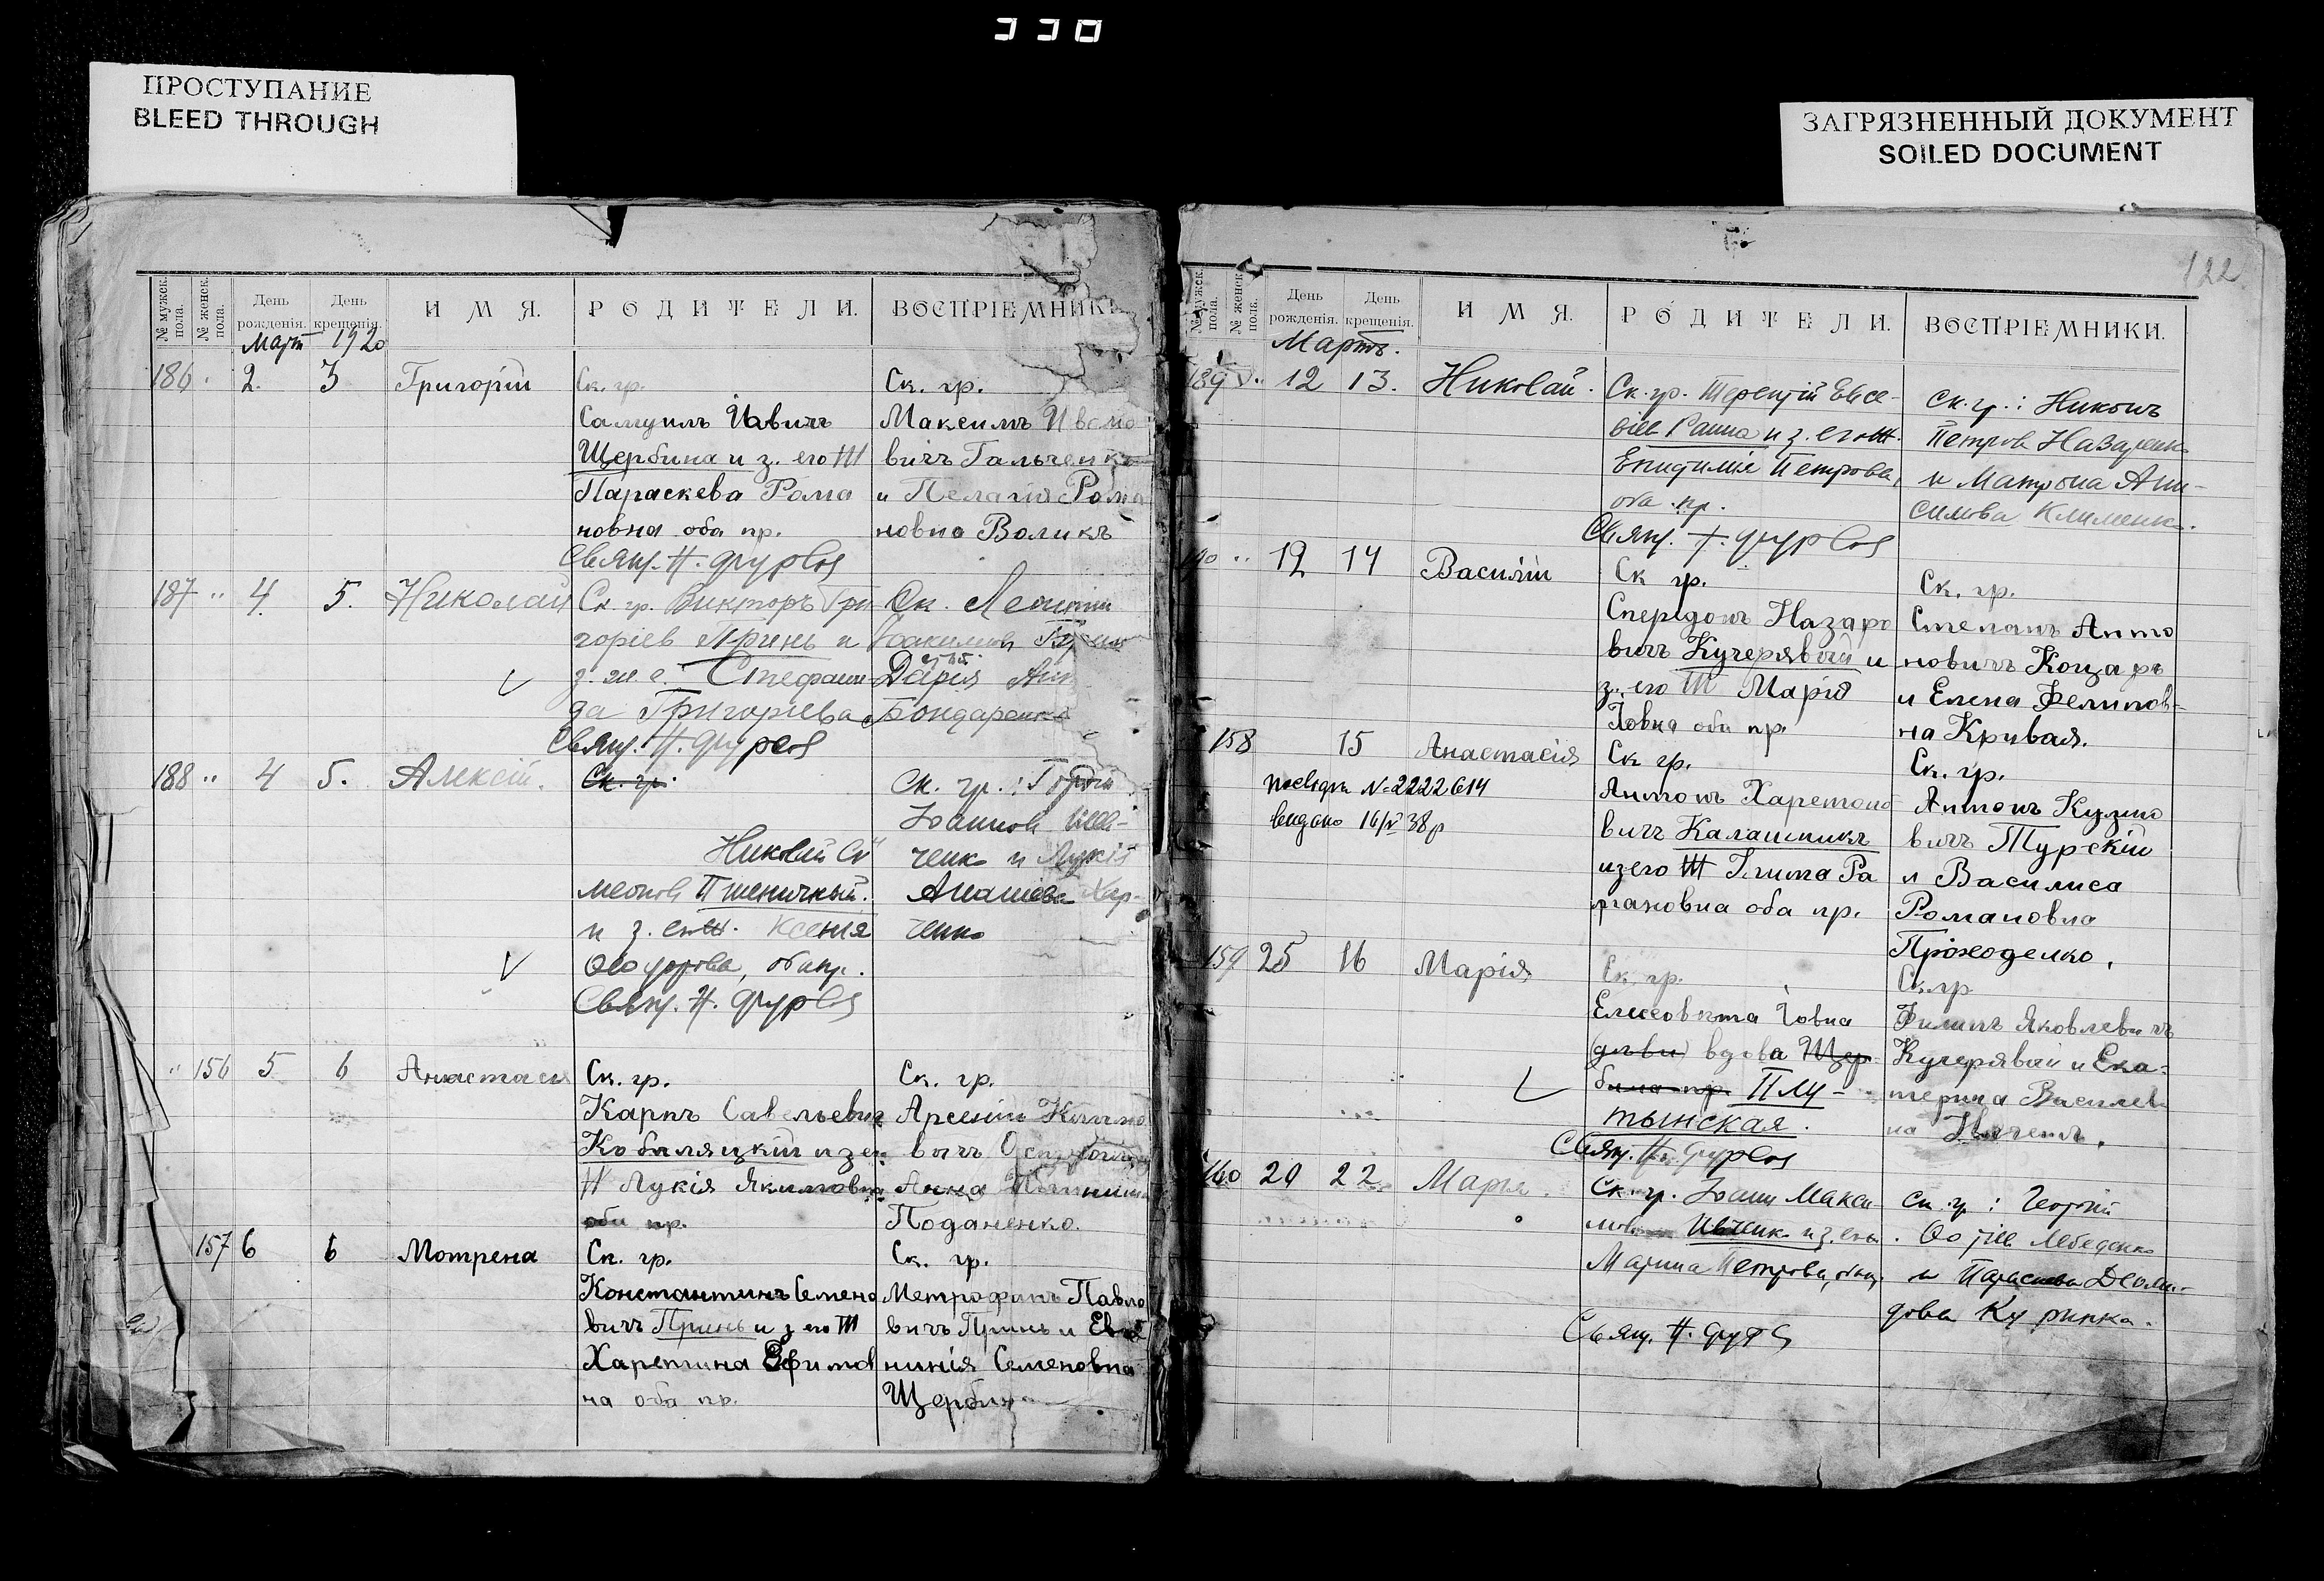 330
ПРОСТУПАНИЕ
BLEED THROUGH
ЗАГРЯЗНЕННЫЙ ДОКУМЕНТ
SOILED DOCUMENT
№ мужск. пола.
№ женск. пола.
День рожденія.
День крещенія.
ИМЯ.
РОДИТЕЛИ.
ВОСПРІЕМНИКИ
Март 1920
186 2. 3 Григорій
Ск. гр.
Самуилъ Іовичъ
Щербина и з. его Ж
Параскева Рома
новна оба пр.
Свящ. Н.
Ск. гр.
Максимъ Ивано
вичъ Гальченко
и Пелагія Рома
новна Воликъ
187 " 4. 5. Николай
Ск. гр. Викторъ Гри
горіев Принь и
з. ж. е. Стефани
да Григорієва
Свящ. Н.
Ск. Леонтій
Дарія
Бондаренко
188 " 4 5. Алексій.
Ск. гр.
Николай Си
меонов Пшеничный.
и з. его ж. Ксенія
Ѳеодорова, оба пр.
Свящ. Н.
Ск. гр. :
Іоаннов
ченк и Лукія
Ананіева Хар-
ченко
" 156 5 6 Анастасія
Ск. гр.
Карпъ Савельевич
Кобиляцкій и з его
Ж Лукія Якимовна
оба пр.
Ск. гр.
Арсеній
вичъ
Анна
Поданенко.
157 6 6 Мотрена
Ск. гр.
Константинъ Семено
вичъ Принь и з его Ж
Харетина Ефимов
на оба пр.
Ск. гр.
Метрофанъ Павло
вичъ Принь и Евд
нинія Семеновна
Щербин
122
№ мужск. пола.
№ женск. пола.
День рожденія.
День крещенія.
ИМЯ.
РОДИТЕЛИ.
ВОСПРІЕМНИКИ.
Мартъ.
189 " 12 13. Николай.
Ск. гр. Терентій Евсе-
віев Ганна и з. его ж.
Петрова,
оба пр.
Свящ. Н.
Ск. гр. : Никонъ
Петров Назаренко
и Матрона Ани-
симова Клименко.
190 " 12 14 Василій
Ск гр.
Спередонъ Назаро
вичъ Кучерявый и
з. его Ж Марія
Іовна оба пр.
Ск. гр.
Степанъ Анто
новичъ Коцарь
и Елена Фелипов-
на Кривая.
158 15 Анастасія
посвідч. №2222614
видано 16/V 38р
Ск гр.
Антонъ Харетоно
вичъ Калашникъ
и з его Ж Ра
мановна оба пр.
Ск. гр.
Антонъ Кузмо
вичъ Турскій
и Василиса
Романовна
Проходенко.
159 25 16 Марія
Ск. гр.
Елисовѣта Іовна
(дѣви) вдова Щер-
бина пр. Плу-
тынская.
Свящ. Н.
Ск гр
Филипъ Яковлевичъ
Кучерявый и Ека-
терина Василев
на
160 20 22 Марія.
Ск. гр. Іоанн Макси
мов Ивченк и з. его
Марина Петрова, оба пр.
Свящ. Н.
Ск. гр : Георгій
Лебеденко
и Параскева Деоми-
дова